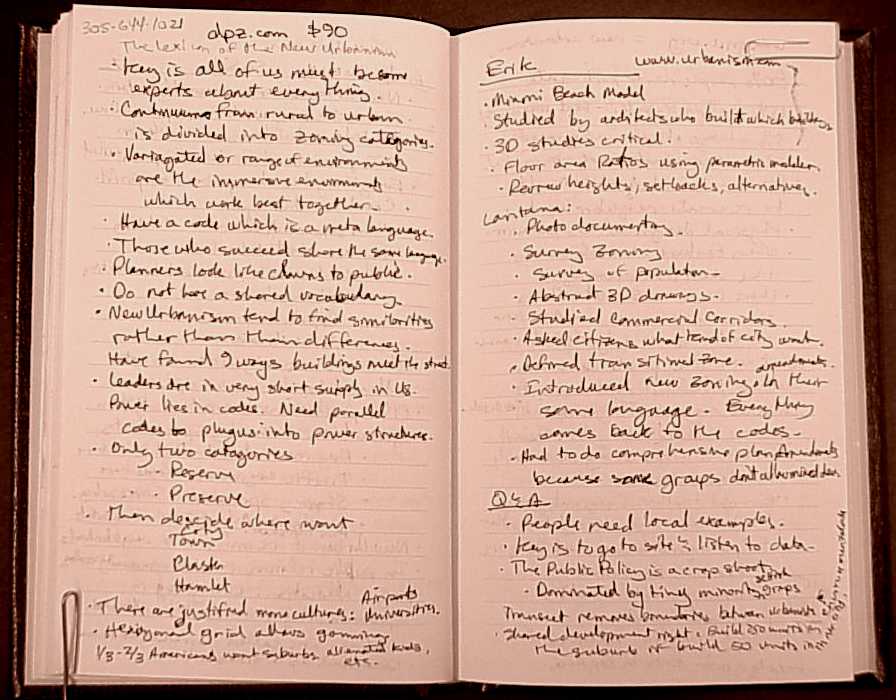 305-644-1021
dpz.com $90
The lexicon of the New Urbanism
· Key is all of us must become
experts about everything.
· Continuum from rural to urban
is divided into zoning categories.
· Variagated or range of environments
are the immersive environments
which work best together.
· Have a code which is a meta language.
· Those who succeed share the same language.
· Planners look like clowns to public.
· Do not have a shared vocabulary.
· New Urbanism tend to find similarities
rather than their differences.
Have found 9 ways buildings meet the street.
· Leaders are in very short supply in US.
Power lies in codes. Need parallel
codes to plugus into power structures.
· Only two catagories
· Reserve
· Preserve
· Then decide where want
City
Town
Cluster
Hamlet
· There are justified monocultures: Airports
Universities.
· Hexagonal grid allows gamming
1/3-2/3 Americans want suburbs alienated kids,
etc.
Erik
www.urbanism.com
· Miami Beach Model
· Studied by architects who built which buildings
· 3D studies critical.
· Floor area Ratios using parametric modeler
· Review heights, setbacks, alternatives.
Lantana:
· Photo documenting.
· Survey Zoning
· Survey of population
· Abstract 3D drawings.
· Studied Commercial Corridors.
· Asked citizens what kind of city want.
· Defined transitional zone.
· Introduced new zoning in their amendments.
same language. Everything
comes back to the codes.
· Had to do comprehensive plan Amendments
because some groups don't
Q & A
· People need local examples.
· Key is to go to site & listen to data.
· The Public Policy is a crap shoot
· Dominated by tiny minority groups
Transect removes boundaries between urbanists & environmentalists
· Shared development right. Build 250 units in
the suburb if build 50 units in the city.